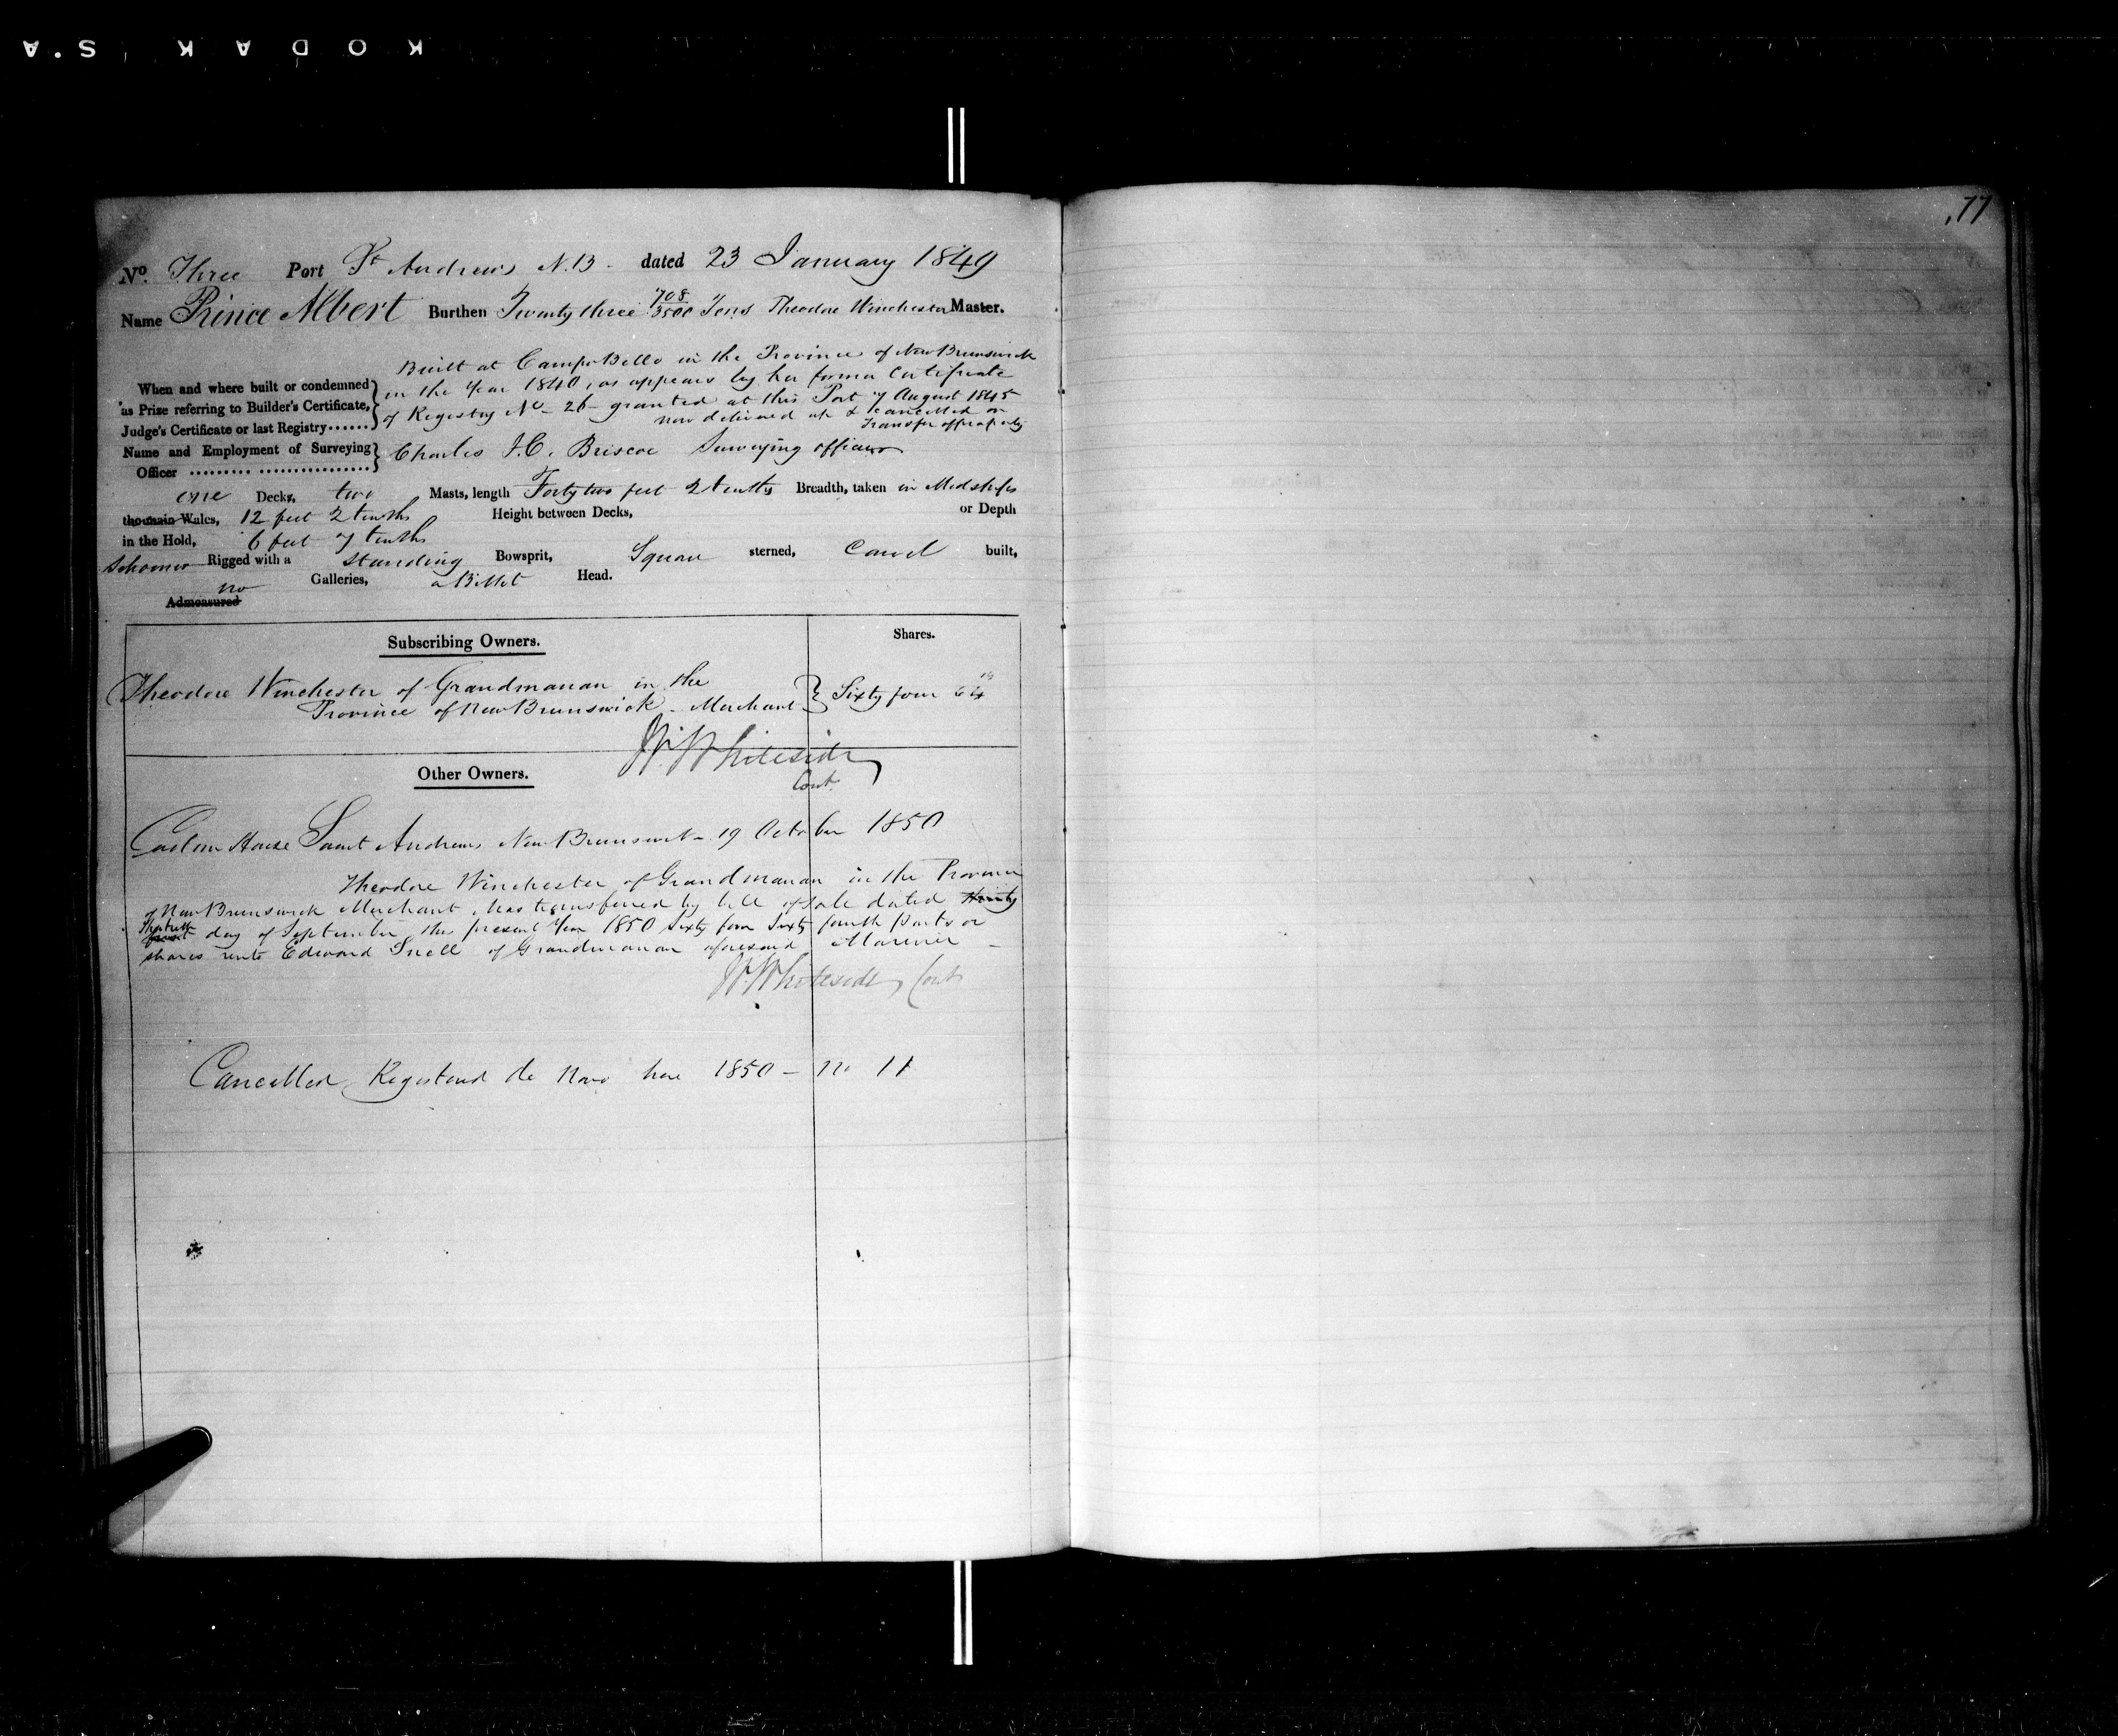 KODAK S.A
77
No. Three Port St Andrews N.B - dated 23 January 1849
Name Prince Albert Burthen Twenty three 708/3500 Tons Theodore Winchester Master.
Built at CampoBello in the Province of New Brunswick
When and where built or condemned as Prize referring to Builder's Certificate, Judge's Certificate or last Registry......
in the Year 1840, as appears by her former Certificate
of Registry No - 26 - granted at this Port 7 August 1845
now delivered up & cancelled on
Transfer of property
Name and Employment of Surveying Officer ......... ................ Charles J.C. Briscoe Surveying officer
one Decks, two Masts, length Forty two feet 2 tenths Breadth, taken in Midships
the main Wales, 12 feet 2 tenths Height between Decks, or Depth
in the Hold, 6 feet 7 tenths
Schooner Rigged with a Standing Bowsprit, Square sterned, Carvel built,
no Galleries, a Billet Head.
Admeasured
Subscribing Owners. Shares.
Theodore Winchester of Grandmanan in the
Province of New Brunswick - Merchant } Sixty four 64ths
W. Whiteside
Cont.
Other Owners.
Custom House Saint Andrews New Brunswick - 19 October 1850
Theodore Winchester of Grandmanan in the Province
of New Brunswick Merchant has transferred by bill of sale dated thirty
Thirtieth first day of September this present Year 1850 Sixty four Sixty fourth parts or
shares unto Edward Snell of Grandmanan aforesaid Mariner -
W. Whiteside, Cont
Cancelled, Registered de Novo here 1850 - no 11